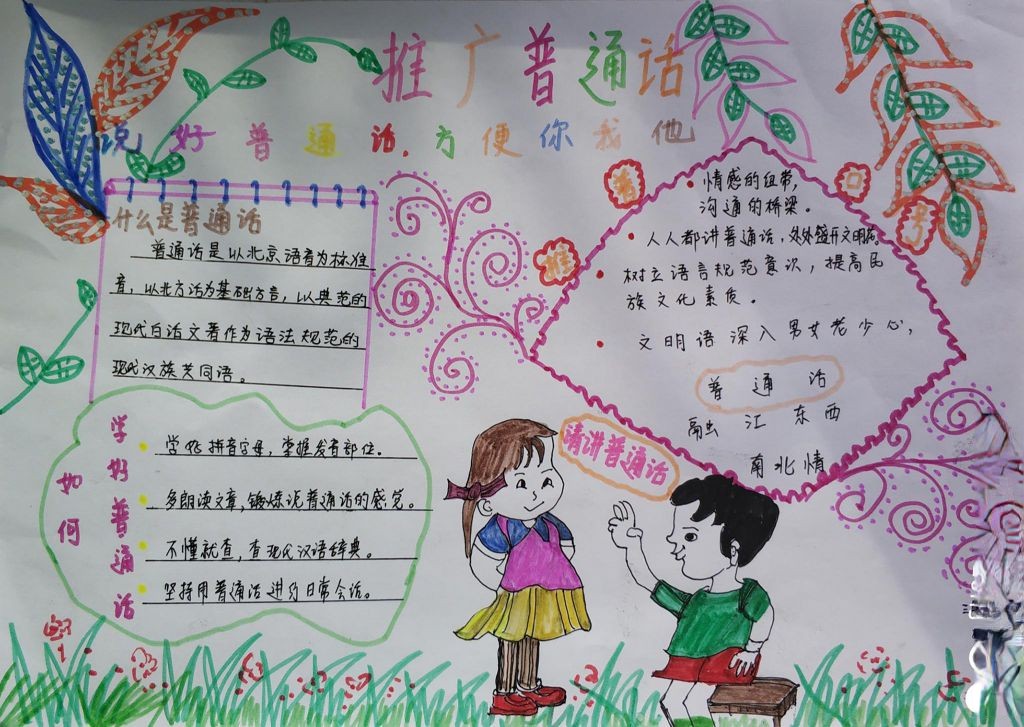 推广普通话
说好普通话,方便你我他
什么是普通话
普通话是以北京语音为标准
音,以北方话为基础方言,以典范的
现代白话文著作为语法规范的
现代汉族共同语。
如何
学好普通话
学好拼音字母,掌握发音部位。
多朗读文章,锻炼说普通话的感觉。
不懂就查,查现代汉语辞典。
坚持用普通话进行日常会话。
推
口
号
情感的纽带,
沟通的桥梁。
人人都讲普通话,处处盛开文明花
树立语言规范意识,提高民
族文化素质。
文明语深入男女老少心,
普通话
融江东西
南北情
请讲普通话